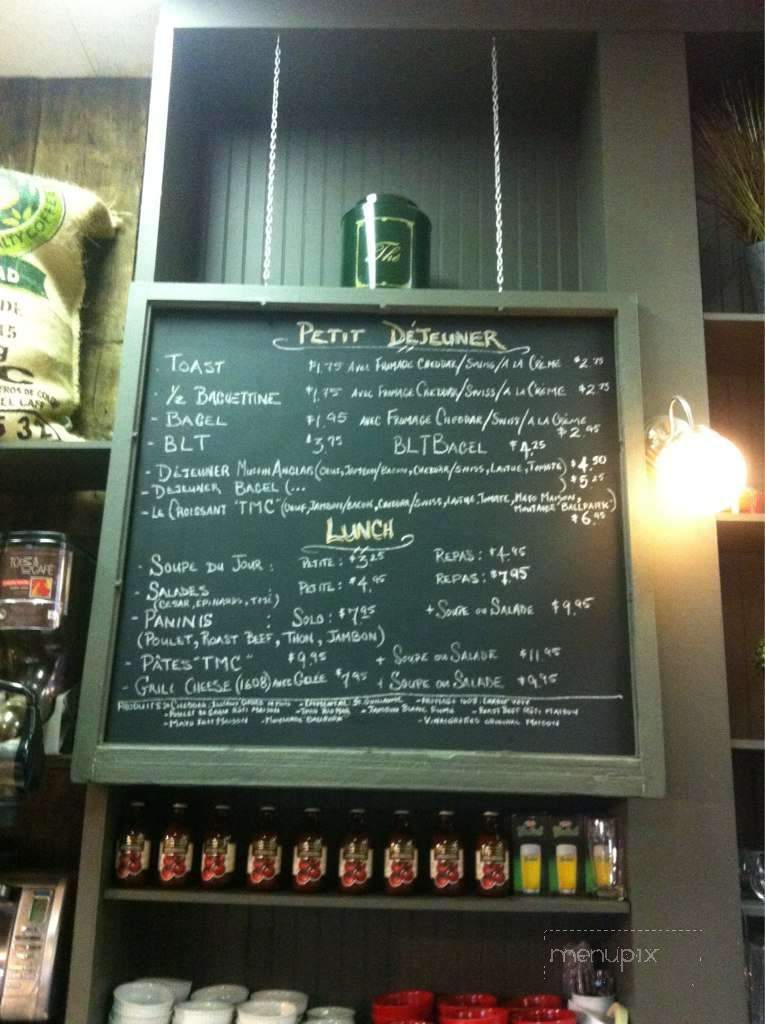 PETIT DÉJEUNER
- TOAST $1.75 AVEC FROMAGE CHEDDAR/SWISS/A LA CRÈME $2.75
- ½ BAGUETTINE $1.75 AVEC FROMAGE CHEDDAR/SWISS/A LA CRÈME $2.75
- BAGEL $1.95 AVEC FROMAGE CHEDDAR/SWISS/A LA CRÈME $2.95
- BLT $3.95 BLT BAGEL $4.25
- DÉJEUNER MUFFIN ANGLAIS (OEUF, JAMBON/BACON, CHEDDAR/SWISS, LAITUE, TOMATE) $4.50
- DEJEUNER BAGEL (... ) $5.25
- LE CROISSANT "TMC" (OEUF, JAMBON/BACON, CHEDDAR/SWISS, LAITUE, TOMATE, MAYO MAISON,
MOUTARDE "BALLPARK") $6.95
LUNCH
- SOUPE DU JOUR : PETITE: $3.25 REPAS: $4.95
- SALADES : PETITE: $4.95 REPAS: $7.95
(CESAR, EPINARDS,
- PANINIS : SOLO: $7.95 + SOUPE OU SALADE $9.95
(POULET, ROAST BEEF, THON, JAMBON)
- PÂTES "TMC" $9.95 + SOUPE OU SALADE $11.95
- GRILL CHEESE (1608) AVEC GELÉE $7.95 + SOUPE OU SALADE $9.95
PRODUITS
- ROAST BEEF RÔTI MAISON
- MAYO MAISON - VINAIGRETTES ORIGINAL MAISON
Thé
TY COFFEE
DE
menupix